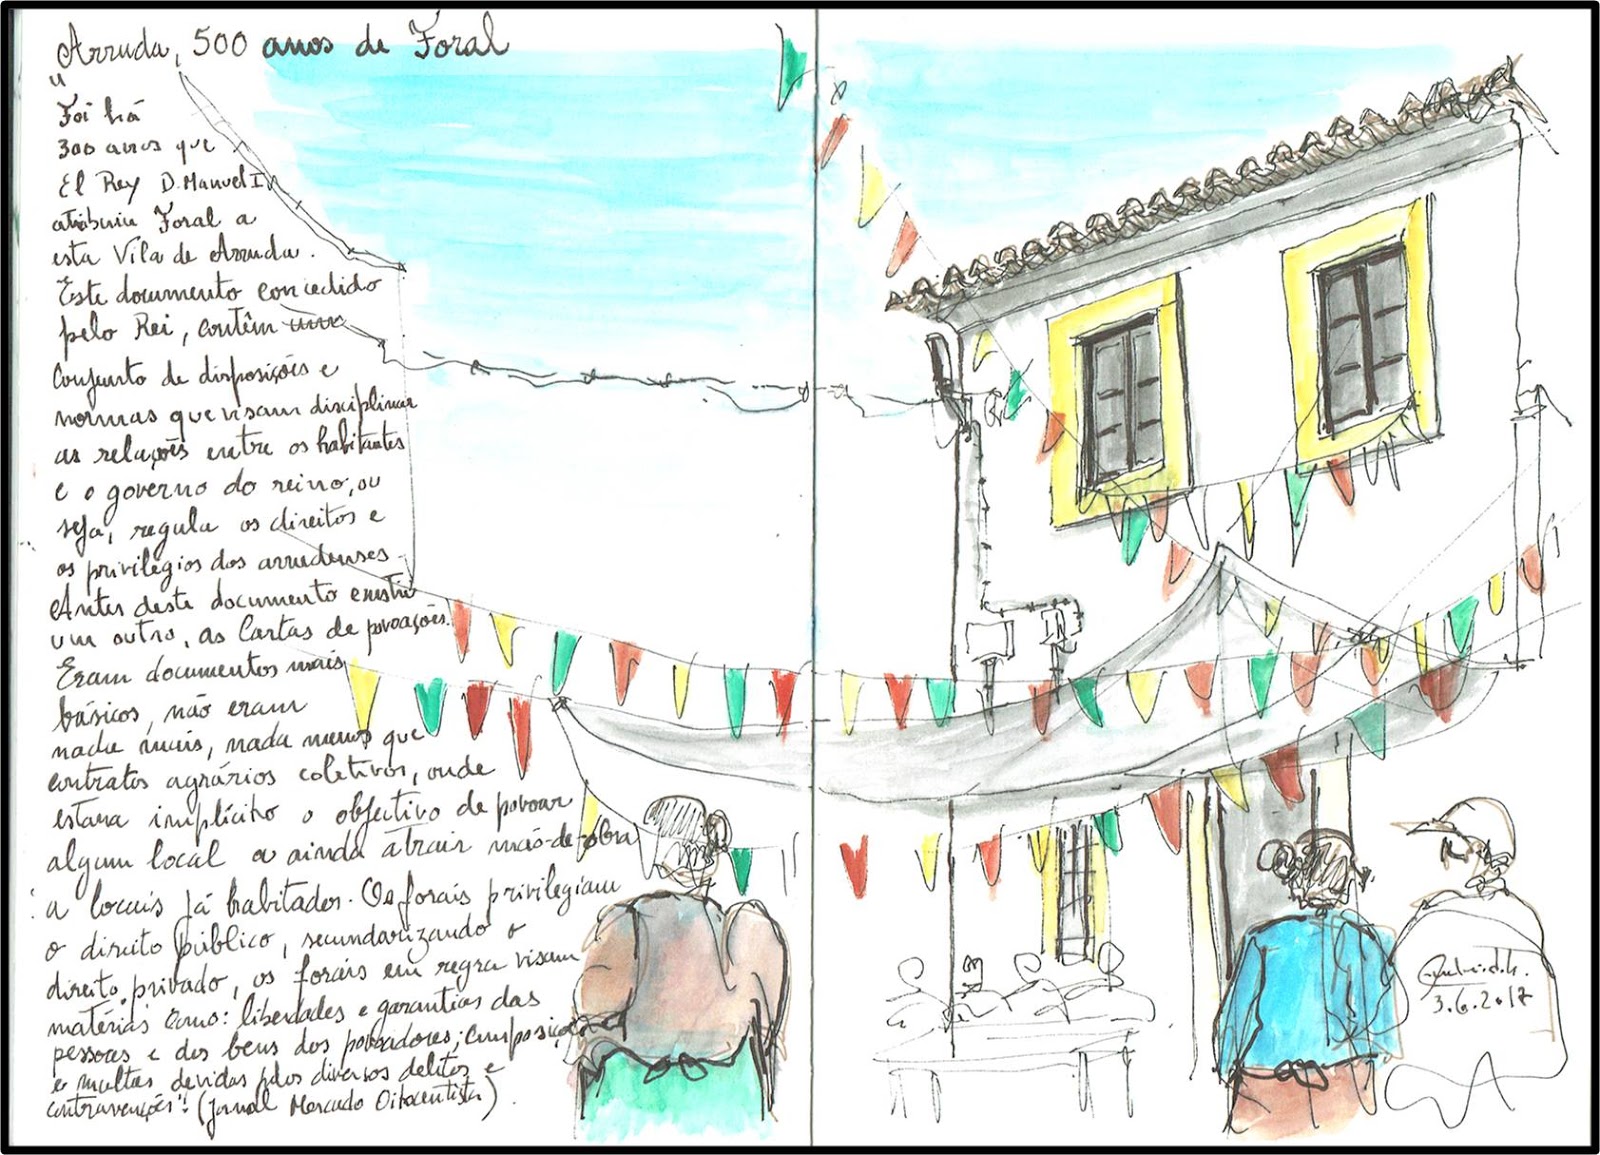 Arruda, 500 anos de Foral
"
Foi há
300 anos que
El Rey D. Manuel I
atribuiu Foral a
esta Vila de Arruda.
Este documento concedido
pelo Rei, contêm
conjunto de disposições e
normas que visam disciplinar
as relações entre os habitantes
e o governo do reino, ou
seja, regula os direitos e
os privilégios dos arrudenses.
Antes deste documento existiu
um outro, as Cartas de povoações.
Eram documentos mais
básicos, não eram
nada mais, nada menos que
contratos agrários coletivos, onde
estava implícito o objectivo de povoar
algum local o ainda atrair mão-de-obra
a locais já habitados. Os forais privilegiam
o direito público, secundarizando o
direito privado, os forais em regra visam
matérias como: liberdades e garantias das
pessoas e dos bens dos povoadores; composição
e multas devidas pelos diversos delitos e
contravenções". (Jornal Mercado Oitocentista).
3.6.2017